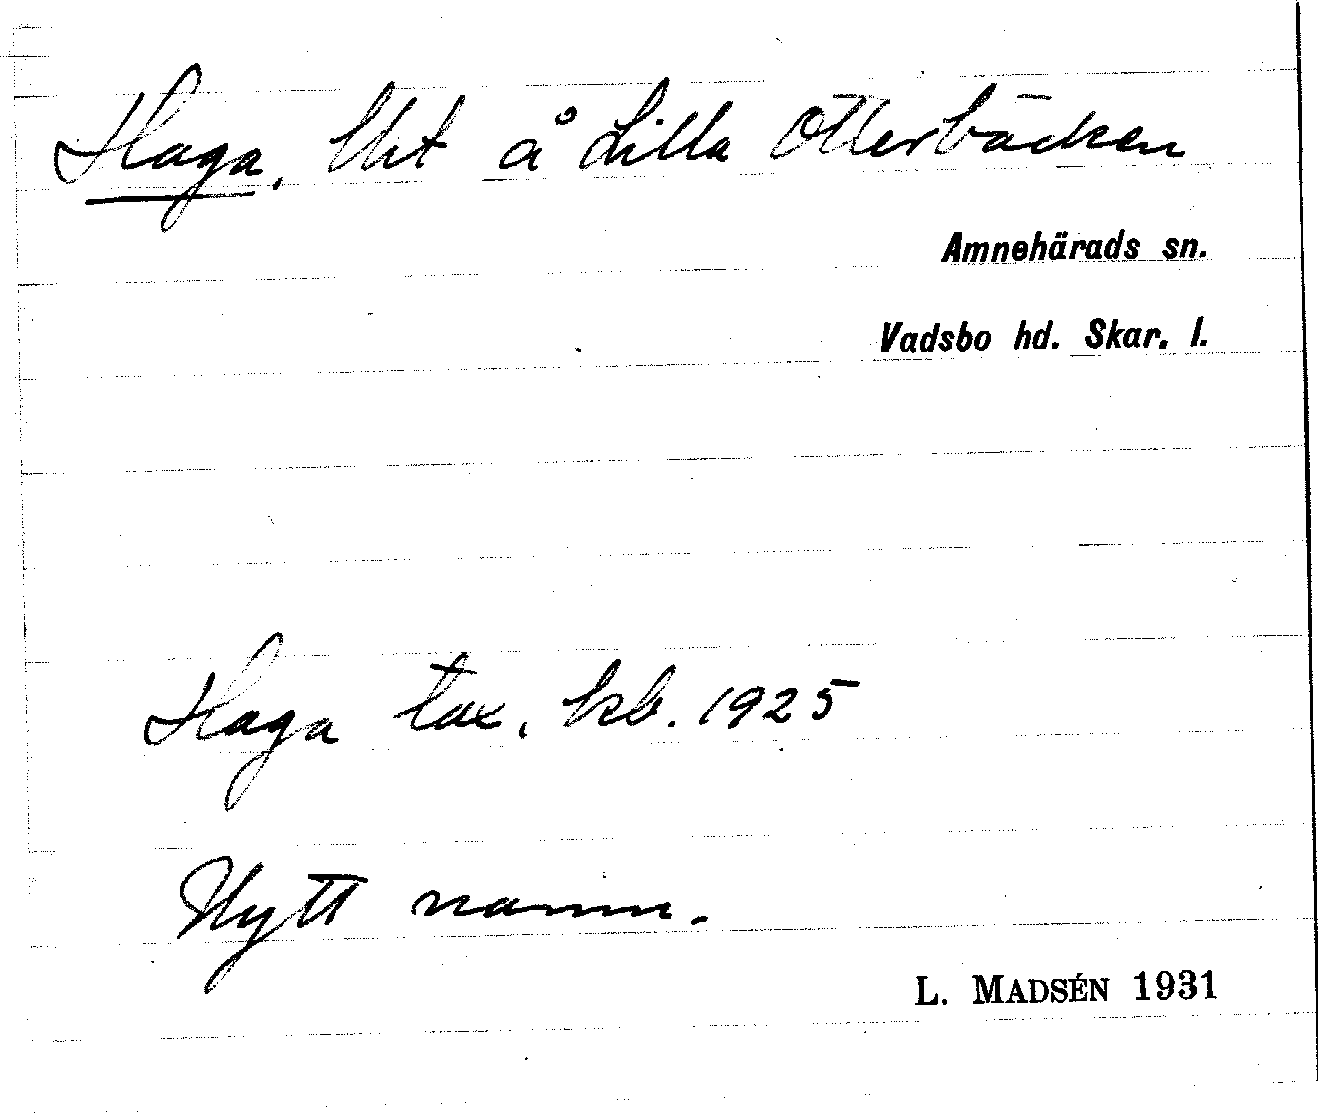 Haga, lht å Lilla Otterbäcken
Amnehärads sn.
Vadsbo hd. Skar. l.
Haga tax. kb. 1925
Nytt namn.
L. MADSÉN 1931